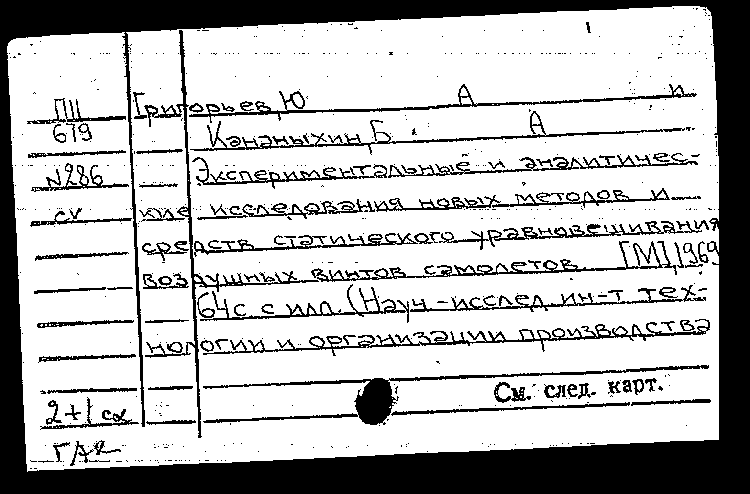 1
ПIII Григорьев, Ю А и
679 Кананыхин, Б. А
N286 Экспериментальные и аналитичес-
сv кие исследования новых методов и
средств статического уравновешивания
воздушных винтов самолетов. [М], 1969
64с с илл. (Науч.-исслед. ин-т тех-
нологии и организации производства
См. след. карт.
2+1